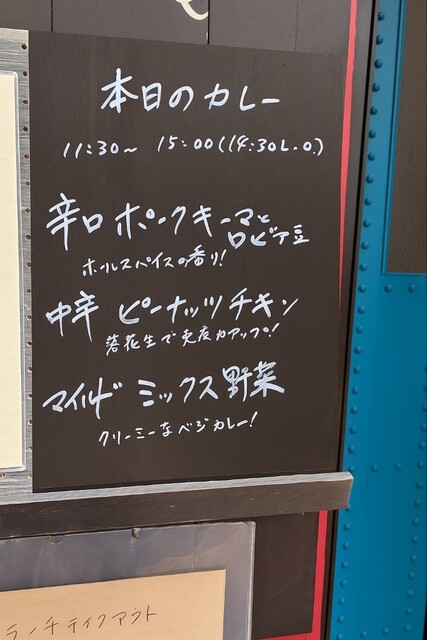 本日のカレー
11:30～ 15:00(14:30L.O.)
辛口 ポークキーマと
ロビア豆
ホールスパイスの香り!
中辛 ピーナッツチキン
落花生で免疫力アップ!
マイルド ミックス野菜
クリーミーなベジカレー!
ランチテイクアウト